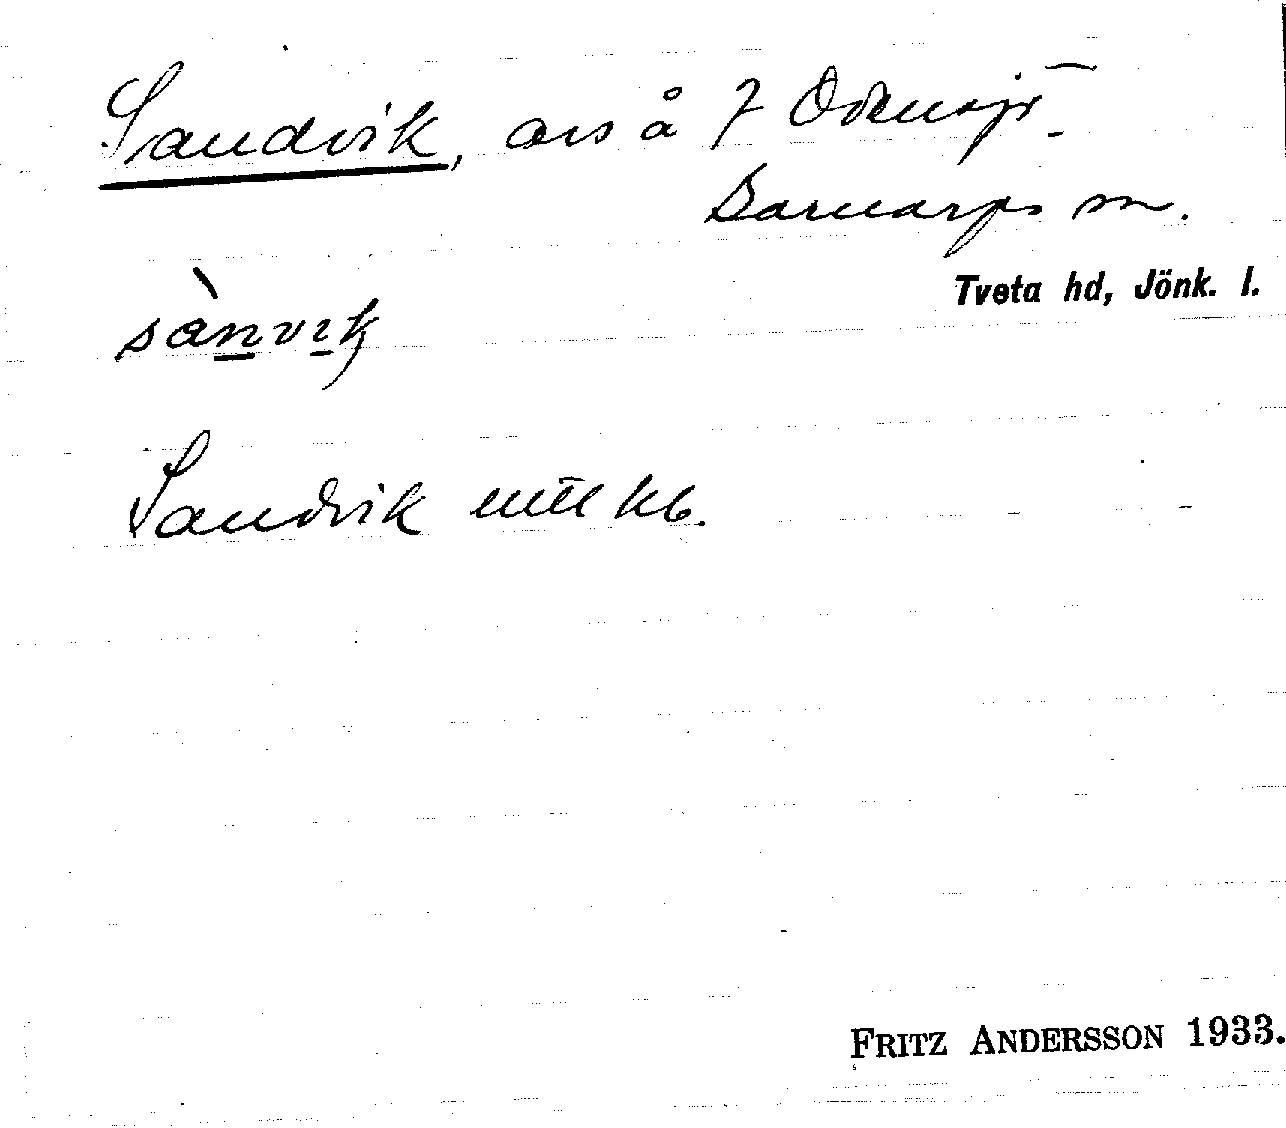 Sandvik, avs å 7 Odensjö
Barnarps sn.
Tveta hd, Jönk. l.
sànvik
Sandvik mtl kb.
FRITZ ANDERSSON 1933.